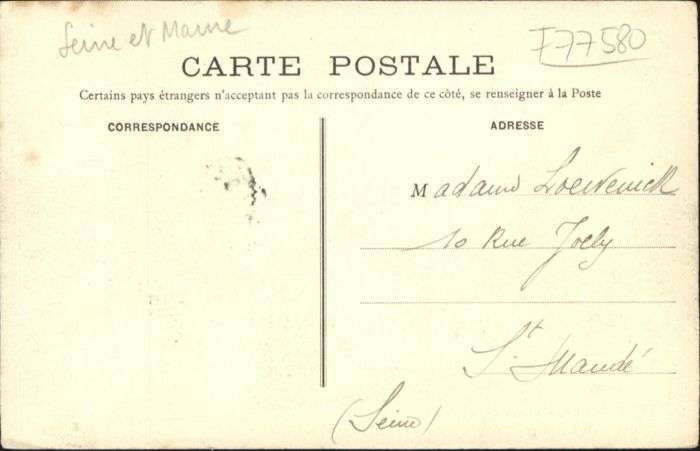 Seine et Marne
F77580
CARTE POSTALE
Certains pays étrangers n'acceptant pas la correspondance de ce côté, se renseigner à la Poste
CORRESPONDANCE
ADRESSE
Madame Loevenick
10 Rue Joly
St Mandé
(Seine)